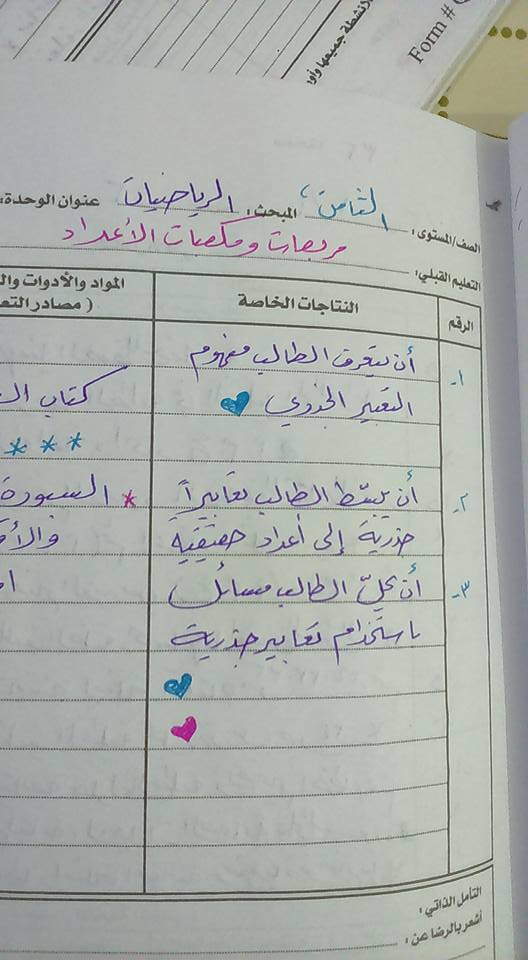 لأنشطة جميعها وأور
Form #
الصف/المستوى: الثامن، المبحث: الرياضيات عنوان الوحدة:
التعليم القبلي: مربعات ومكعبات الأعداد
الرقم النتاجات الخاصة المواد والأدوات وال
( مصادر التعل
١- أن يتعرف الطالب مفهوم
التعبير الجذري كتاب
٢- أن يبسّط الطالب تعابيراً * السبورة
جذرية إلى أعداد حقيقية
٣- أن يحلّ الطالب مسائل
باستخدام تعابير جذرية
التأمل الذاتي:
أشعر بالرضا عن: